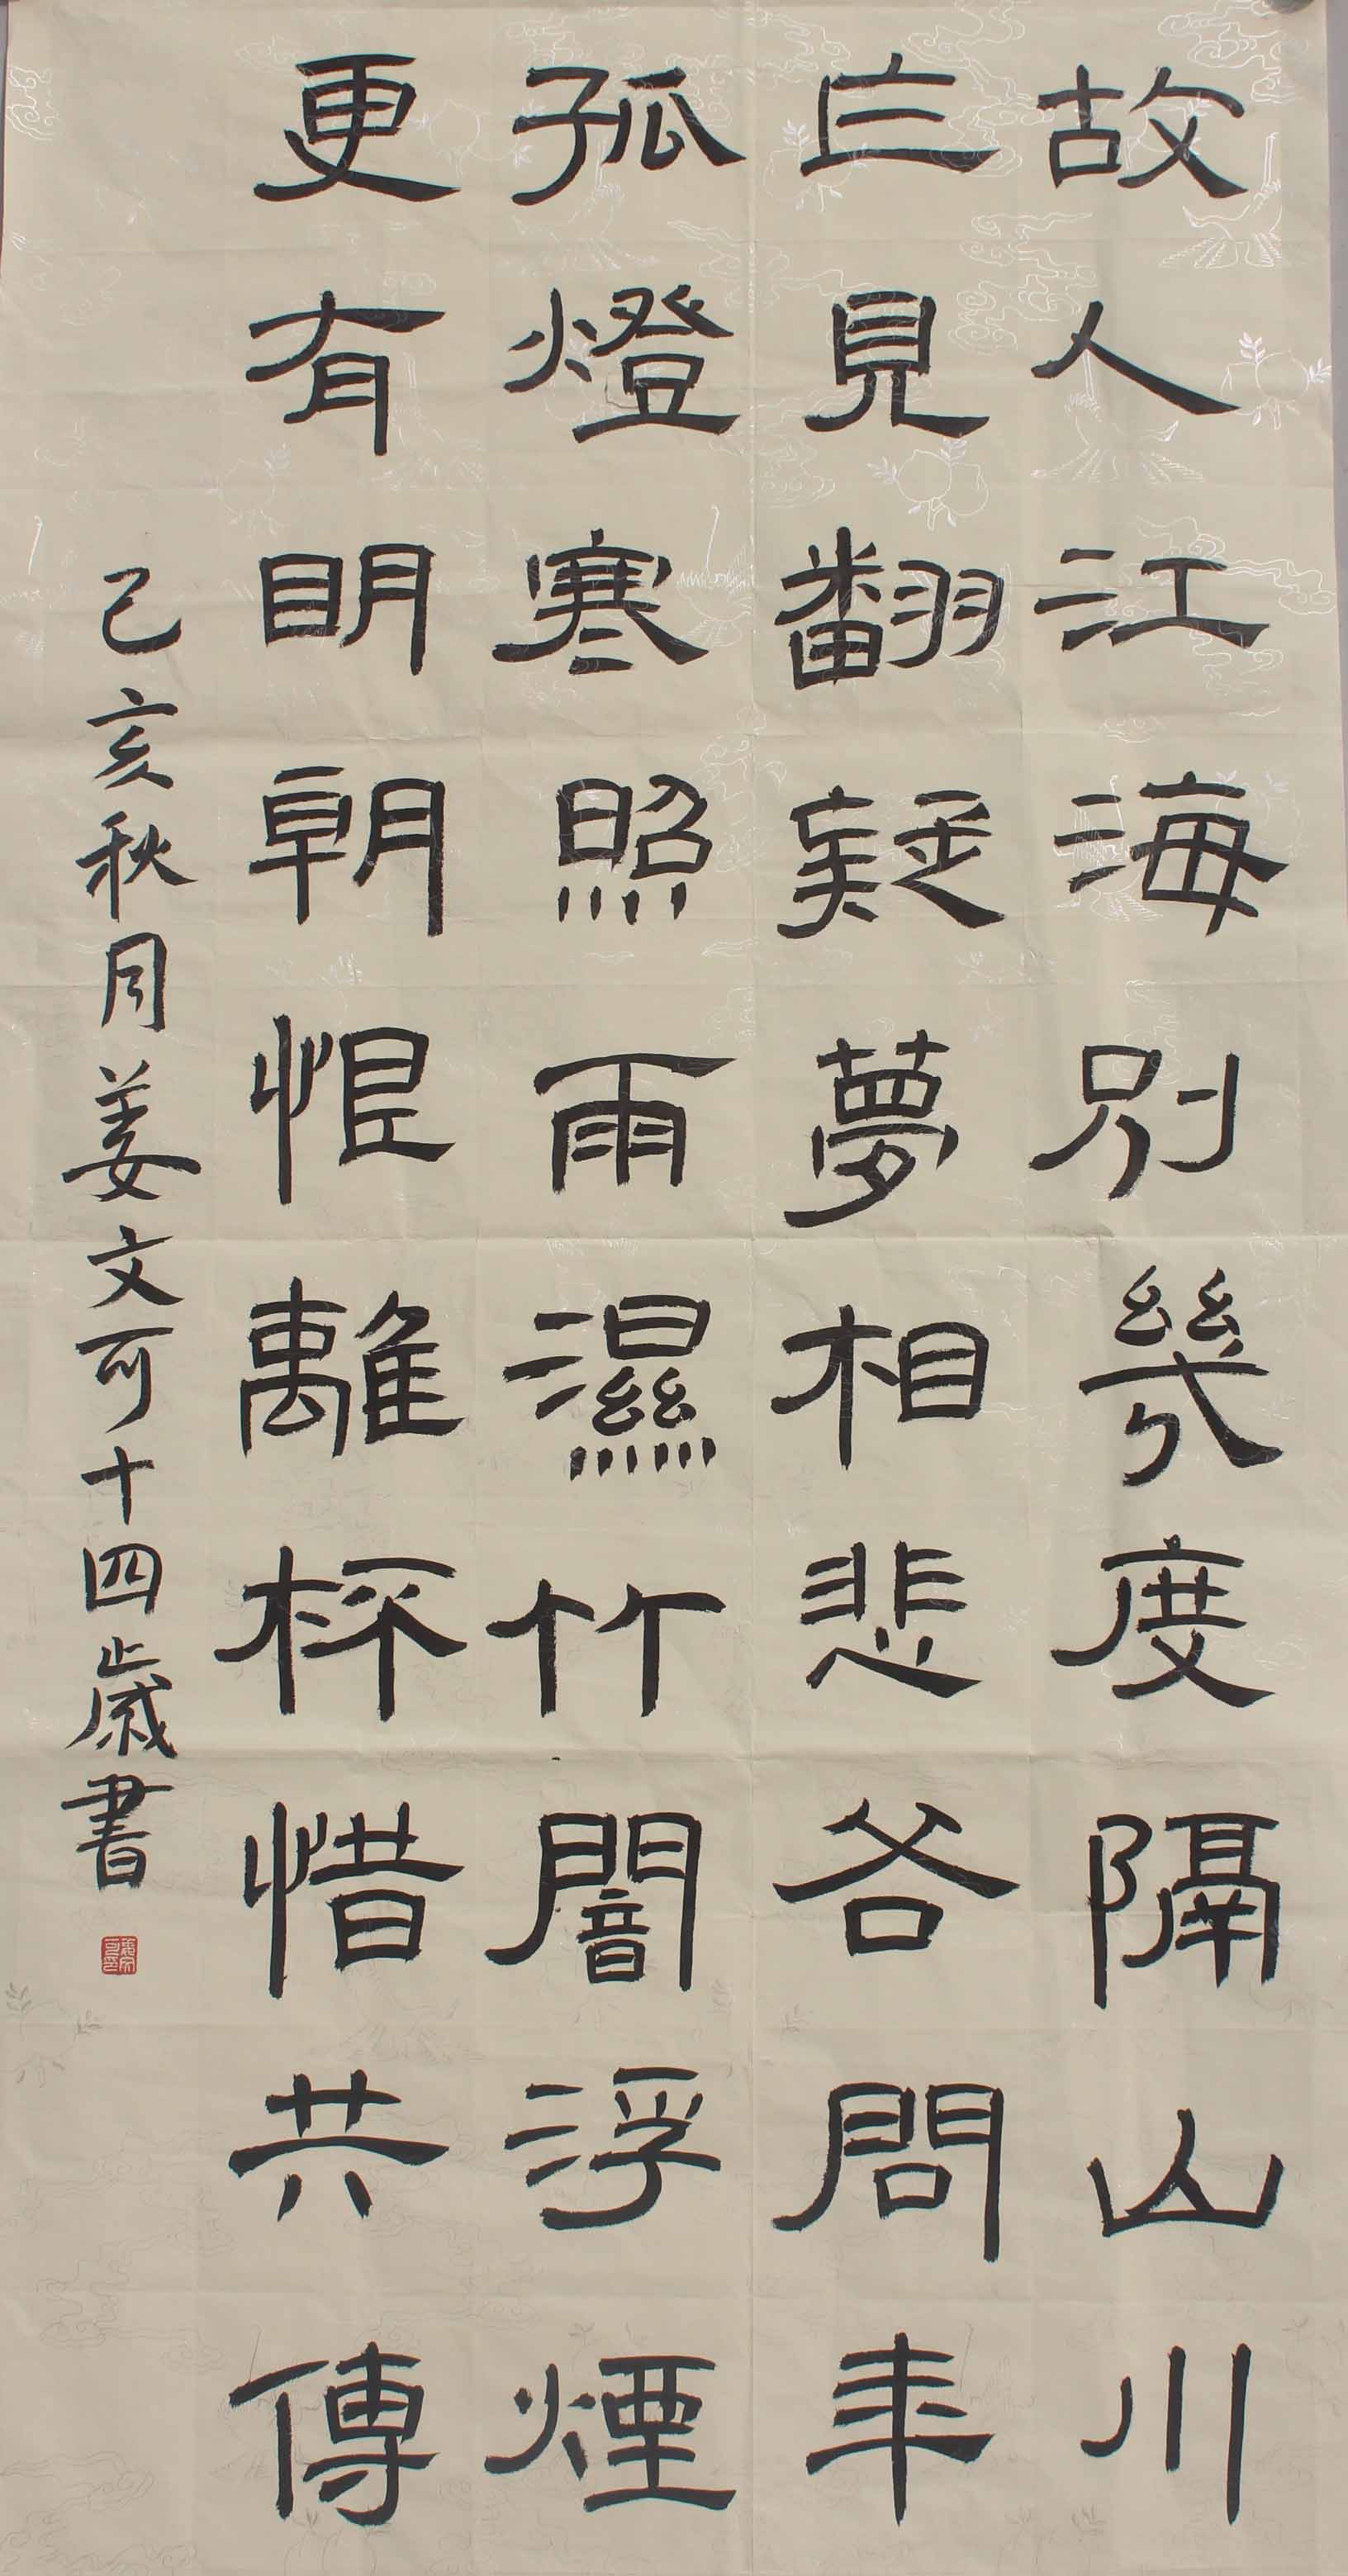 故人江海别幾度隔山川
乍見翻疑夢相悲各問年
孤燈寒照雨濕竹闇浮煙
更有明朝恨離杯惜共傳
己亥秋月姜文可十四歲書